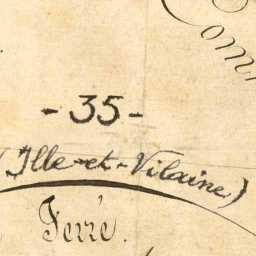 Com
- 35 -
(Ille-et-Vilaine)
Ferré.